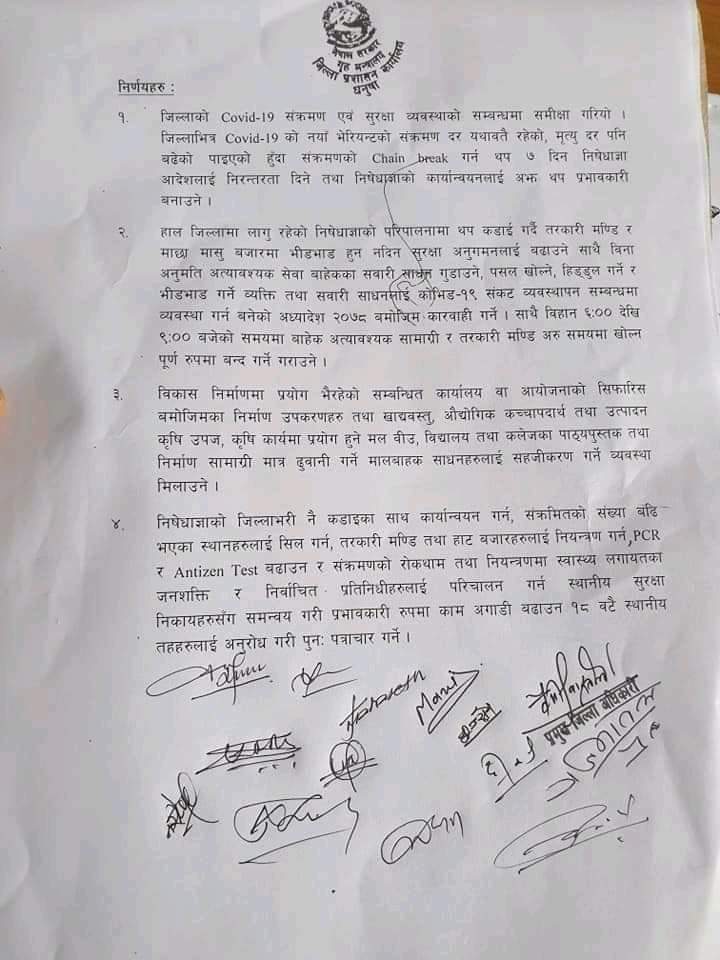 नेपाल सरकार
गृह मन्त्रालय
जिल्ला प्रशासन कार्यालय
धनुषा
निर्णयहरु :
१. जिल्लाको Covid-19 संक्रमण एवं सुरक्षा व्यवस्थाको सम्बन्धमा समीक्षा गरियो ।
जिल्लाभित्र Covid-19 को नयाँ भेरियन्टको संक्रमण दर यथावतै रहेको, मृत्यु दर पनि
बढेको पाइएको हुँदा संक्रमणको Chain break गर्न थप ७ दिन निषेधाज्ञा
आदेशलाई निरन्तरता दिने तथा निषेधाज्ञाको कार्यान्वयनलाई अझ थप प्रभावकारी
बनाउने ।
२. हाल जिल्लामा लागु रहेको निषेधाज्ञाको परिपालनामा थप कडाई गर्दै तरकारी मण्डि र
माछा मासु बजारमा भीडभाड हुन नदिन सुरक्षा अनुगमनलाई बढाउने साथै विना
अनुमति अत्यावश्यक सेवा बाहेकका सवारी साधन गुडाउने, पसल खोल्ने, हिड्डुल गर्ने र
भीडभाड गर्ने व्यक्ति तथा सवारी साधनलाई कोभिड-१९ संकट व्यवस्थापन सम्बन्धमा
व्यवस्था गर्न बनेको अध्यादेश २०७८ बमोजिम कारवाही गर्ने । साथै विहान ६:०० देखि
९:०० बजेको समयमा बाहेक अत्यावश्यक सामाग्री र तरकारी मण्डि अरु समयमा खोल्न
पूर्ण रुपमा बन्द गर्ने गराउने ।
३. विकास निर्माणमा प्रयोग भैरहेको सम्बन्धित कार्यालय वा आयोजनाको सिफारिस
बमोजिमका निर्माण उपकरणहरु तथा खाद्यवस्तु, औद्योगिक कच्चापदार्थ तथा उत्पादन
कृषि उपज, कृषि कार्यमा प्रयोग हुने मल वीउ, विद्यालय तथा कलेजका पाठ्यपुस्तक तथा
निर्माण सामाग्री मात्र ढुवानी गर्ने मालबाहक साधनहरुलाई सहजीकरण गर्ने व्यवस्था
मिलाउने ।
४. निषेधाज्ञाको जिल्लाभरी नै कडाइका साथ कार्यान्वयन गर्न, संक्रमितको संख्या बढि
भएका स्थानहरुलाई सिल गर्न, तरकारी मण्डि तथा हाट बजारहरुलाई नियन्त्रण गर्न, PCR
र Antizen Test बढाउन र संक्रमणको रोकथाम तथा नियन्त्रणमा स्वास्थ्य लगायतका
जनशक्ति र निर्वाचित प्रतिनिधीहरुलाई परिचालन गर्न स्थानीय सुरक्षा
निकायहरुसँग समन्वय गरी प्रभावकारी रुपमा काम अगाडी बढाउन १८ वटै स्थानीय
तहहरुलाई अनुरोध गरी पुन: पत्राचार गर्ने ।
प्रमुख जिल्ला अधिकारी